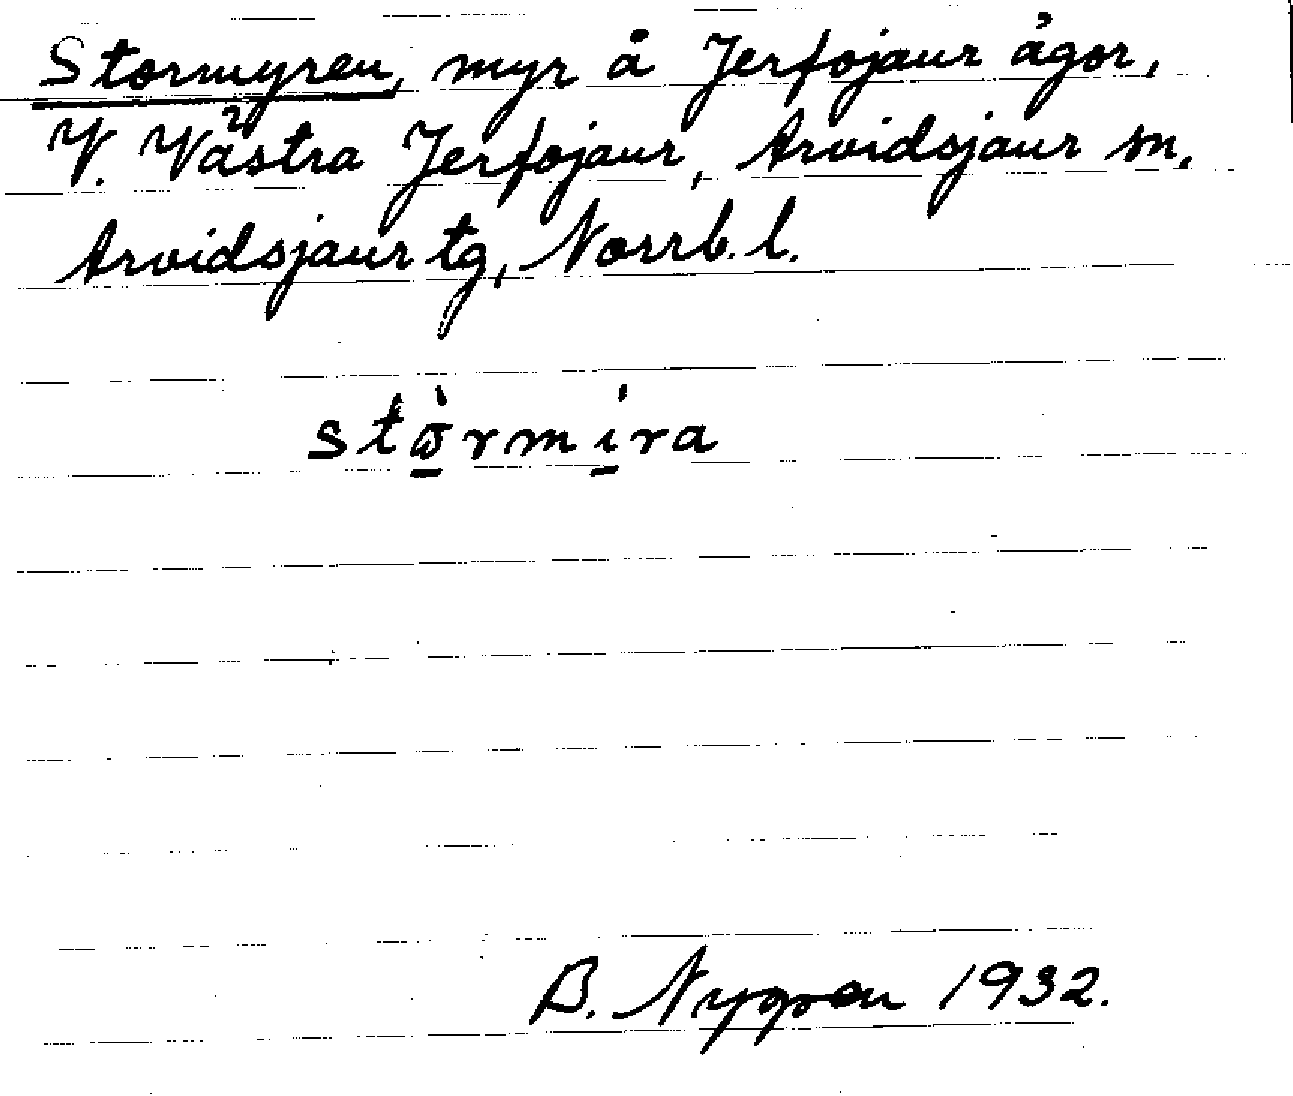 Stormyren, myr å Jerfojaur ägor,
V. Västra Jerfojaur, Arvidsjaur sn,
Arvidsjaur tg, Norrb. l.
stꙍ̀rmi̍ra
B. Nygren 1932.